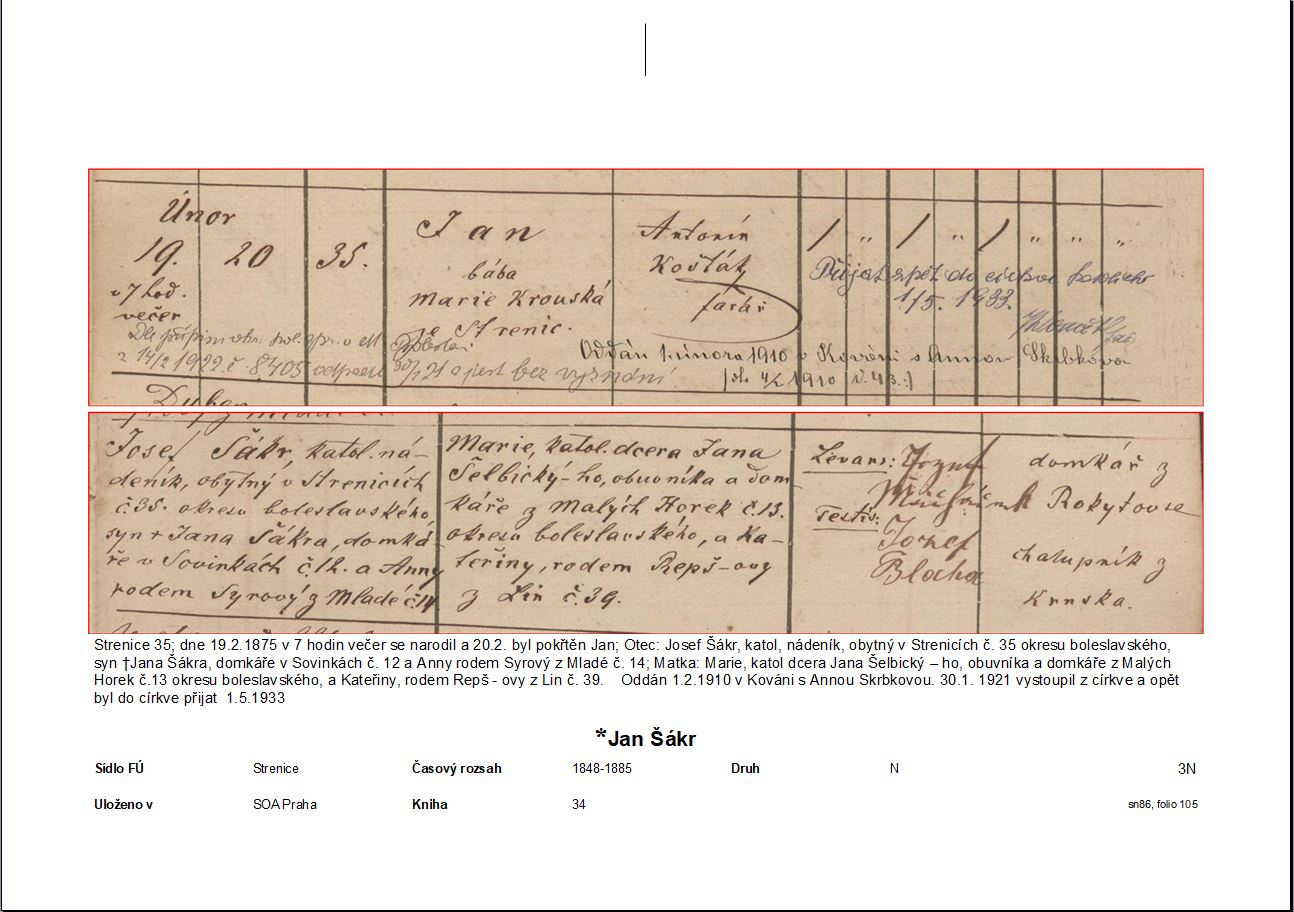 Únor
19. 20 35. Jan Antonín / „ / „ / „ „ „
v 7 hod. bába Košťák
večer Marie Krouská farář
ze Strenic.
Přijat zpět do církve
1/5. 1933.
Dle příp
z 14/2 1922 č. 8405 bez vyznání.
Oddán 1. února 1910 v Kováni s Annou Skrbkovou
1910
Duben
Josef Šákr, katol. ná-
deník, obytný v Strenicích
č. 35. okresu boleslavského,
syn + Jana Šákra, domká-
ře v Sovinkách č. 12. a Anny
rodem Syrový z Mladé č. 14
Marie, katol. dcera Jana
Šelbický-ho, obuvníka a dom
káře z Malých Horek č. 13.
okresu boleslavského, a Ka-
teřiny, rodem Repš-ovy
z Lin č. 39.
Levans: Jozef domkář z
Rokytovce
Testis: Jozef chalupník z
Blaha Krnska.
Strenice 35; dne 19.2.1875 v 7 hodin večer se narodil a 20.2. byl pokřtěn Jan; Otec: Josef Šákr, katol, nádeník, obytný v Strenicích č. 35 okresu boleslavského,
syn †Jana Šákra, domkáře v Sovinkách č. 12 a Anny rodem Syrový z Mladé č. 14; Matka: Marie, katol dcera Jana Šelbický – ho, obuvníka a domkáře z Malých
Horek č.13 okresu boleslavského, a Kateřiny, rodem Repš - ovy z Lin č. 39. Oddán 1.2.1910 v Kováni s Annou Skrbkovou. 30.1. 1921 vystoupil z církve a opět
byl do církve přijat 1.5.1933
*Jan Šákr
Sídlo FÚ Strenice Časový rozsah 1848-1885 Druh N 3N
Uloženo v SOA Praha Kniha 34 sn86, folio 105